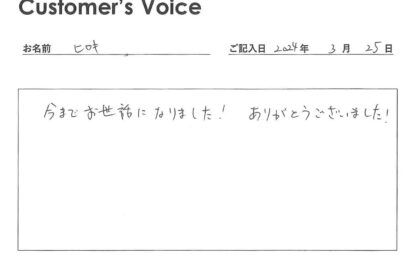 Customer's Voice
お名前 ヒロキ ご記入日 2024年 3月 25日
今までお世話になりました! ありがとうございました!